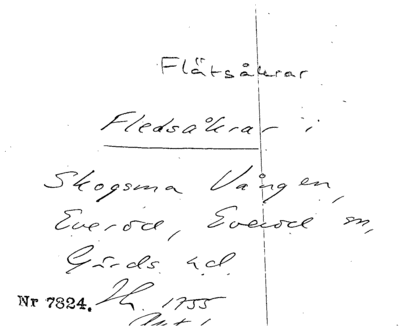 Flätsåkrar
Fledsåkrar i
Skogsma Vången,
Everöd, Everöd sn,
Gärds hd.
Nr 7824. Th. 1755
Akt 1